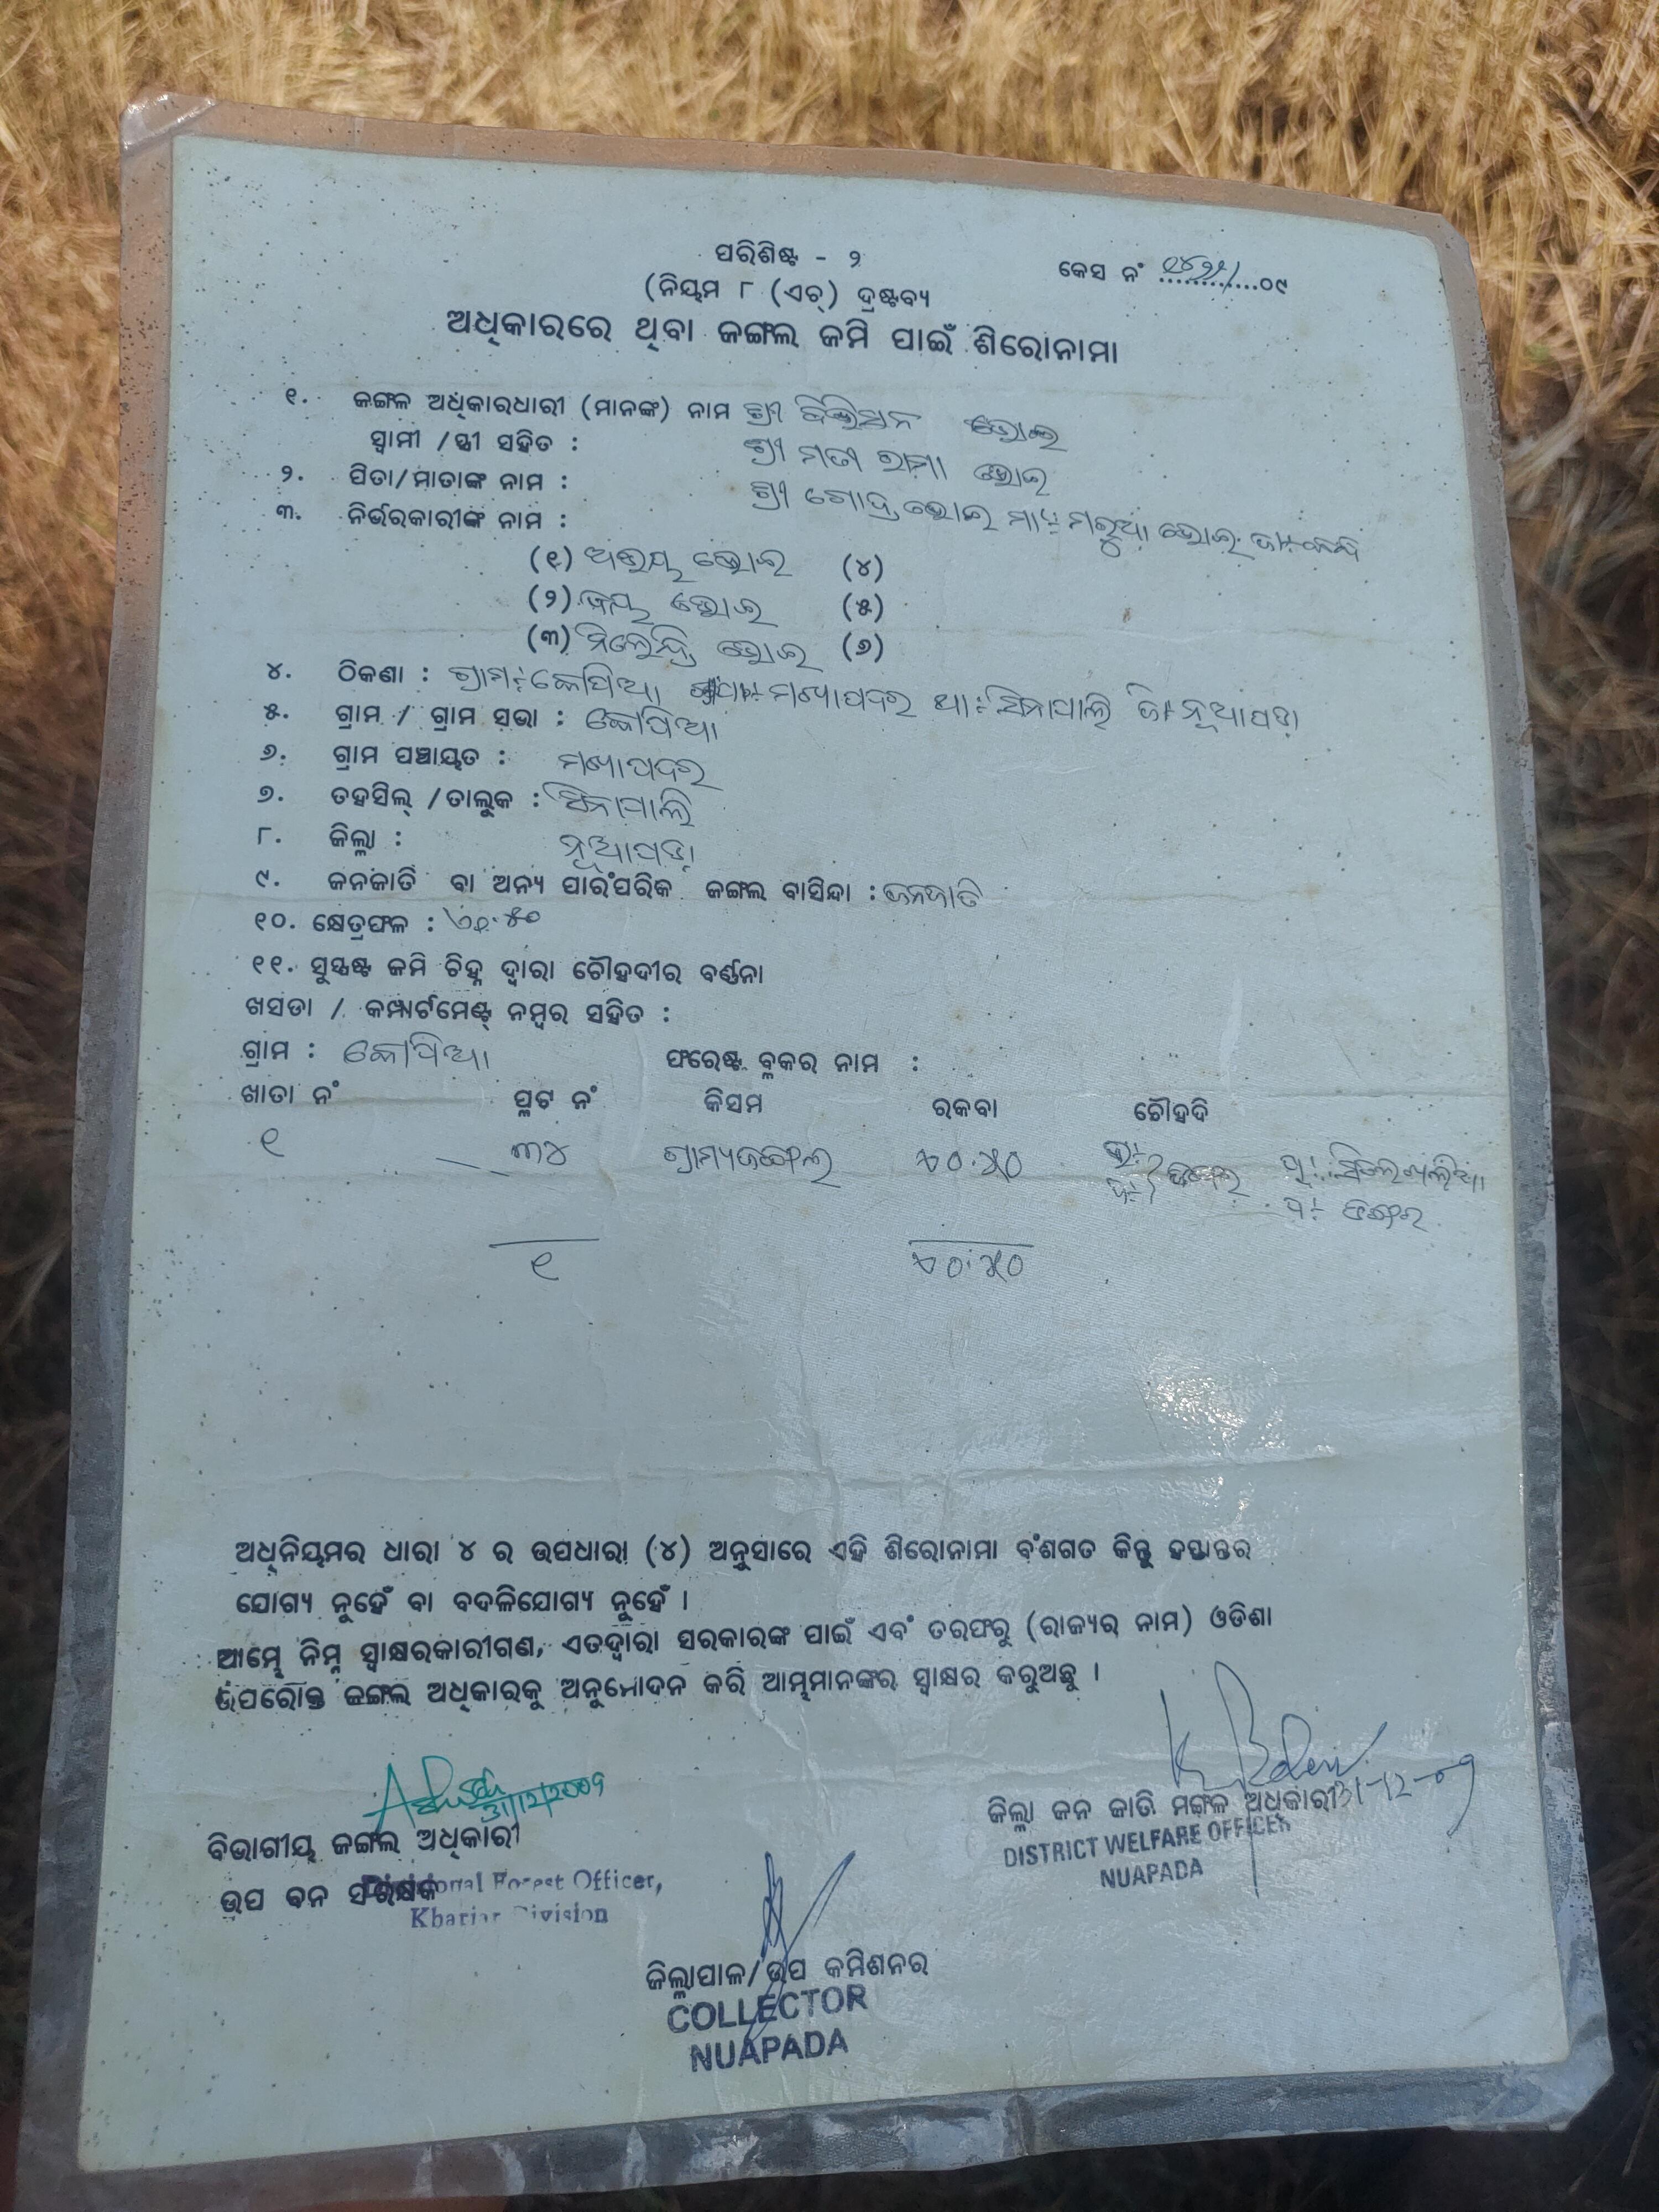 ପରିଶିଷ୍ଟ - ୨
କେସ ନଂ ............୦୯
(ନିୟମ ୮ (ଏଚ୍) ଦ୍ରଷ୍ଟବ୍ୟ
ଅଧିକାରରେ ଥିବା ଜଙ୍ଗଲ ଜମି ପାଇଁ ଶିରୋନାମା
୧. ଜଙ୍ଗଲ ଅଧିକାରଧାରୀ (ମାନଙ୍କ) ନାମ ଶ୍ରୀ ଭୋଇ
ସ୍ୱାମୀ /ସ୍ତ୍ରୀ ସହିତ : ଶ୍ରୀମତୀ ରାମା ଭୋଇ
୨. ପିତା/ମାତାଙ୍କ ନାମ : ଶ୍ରୀ ଭୋଇ ମା: ମରୁଆ ଭୋଇ
୩. ନିର୍ଭରକାରୀଙ୍କ ନାମ :
(୧) ଅଭୟ ଭୋଇ (୪)
(୨) ଜୟ ଭୋଇ (୫)
(୩) ଭୋଇ (୬)
୪. ଠିକଣା : ଗ୍ରାମ: ପୋ: ଥା: ସିନାପାଲି ଜି: ନୂଆପଡା
୫. ଗ୍ରାମ / ଗ୍ରାମ ସଭା :
୬. ଗ୍ରାମ ପଞ୍ଚାୟତ :
୭. ତହସିଲ୍ /ତାଲୁକ : ସିନାପାଲି
୮. ଜିଲ୍ଲା : ନୂଆପଡା
୯. ଜନଜାତି ବା ଅନ୍ୟ ପାରଂପରିକ ଜଙ୍ଗଲ ବାସିନ୍ଦା : ଜନଜାତି
୧୦. କ୍ଷେତ୍ରଫଳ :
୧୧. ସୁସ୍ପଷ୍ଟ ଜମି ଚିହ୍ନ ଦ୍ୱାରା ଚୌହଦୀର ବର୍ଣ୍ଣନା
ଖସଡା / କମ୍ପାର୍ଟମେଣ୍ଟ୍ ନମ୍ବର ସହିତ :
ଗ୍ରାମ : ଫରେଷ୍ଟ ବ୍ଲକର ନାମ :
ଖାତା ନଂ ପ୍ଲଟ ନଂ କିସମ ରକବା ଚୌହଦି
୧ ୩୪ ଗ୍ରାମ୍ୟଜଙ୍ଗଲ ଏ୦.୫୦ ଉ: ଜଙ୍ଗଲ ପୂ:
ଦ: ପ: ଜଙ୍ଗଲ
୧ ଏ୦.୫୦
ଅଧିନିୟମର ଧାରା ୪ ର ଉପଧାରା (୪) ଅନୁସାରେ ଏହି ଶିରୋନାମା ବଂଶଗତ କିନ୍ତୁ ହସ୍ତାନ୍ତର
ଯୋଗ୍ୟ ନୁହେଁ ବା ବଦଳିଯୋଗ୍ୟ ନୁହେଁ ।
ଆମ୍ଭେ ନିମ୍ନ ସ୍ୱାକ୍ଷରକାରୀଗଣ, ଏତଦ୍ୱାରା ସରକାରଙ୍କ ପାଇଁ ଏବଂ ତରଫରୁ (ରାଜ୍ୟର ନାମ) ଓଡିଶା
ଉପରୋକ୍ତ ଜଙ୍ଗଲ ଅଧିକାରକୁ ଅନୁମୋଦନ କରି ଆମ୍ଭମାନଙ୍କର ସ୍ୱାକ୍ଷର କରୁଅଛୁ ।
31/12/2009
ବିଭାଗୀୟ ଜଙ୍ଗଲ ଅଧିକାରୀ
ଉପ ବନ ସଂରକ୍ଷକ
Divisional Forest Officer,
Khariar Division
ଜିଲ୍ଲା ଜନ ଜାତି ମଙ୍ଗଳ ଅଧିକାରୀ 31-12-09
DISTRICT WELFARE OFFICER
NUAPADA
ଜିଲ୍ଲାପାଳ/ଉପ କମିଶନର
COLLECTOR
NUAPADA